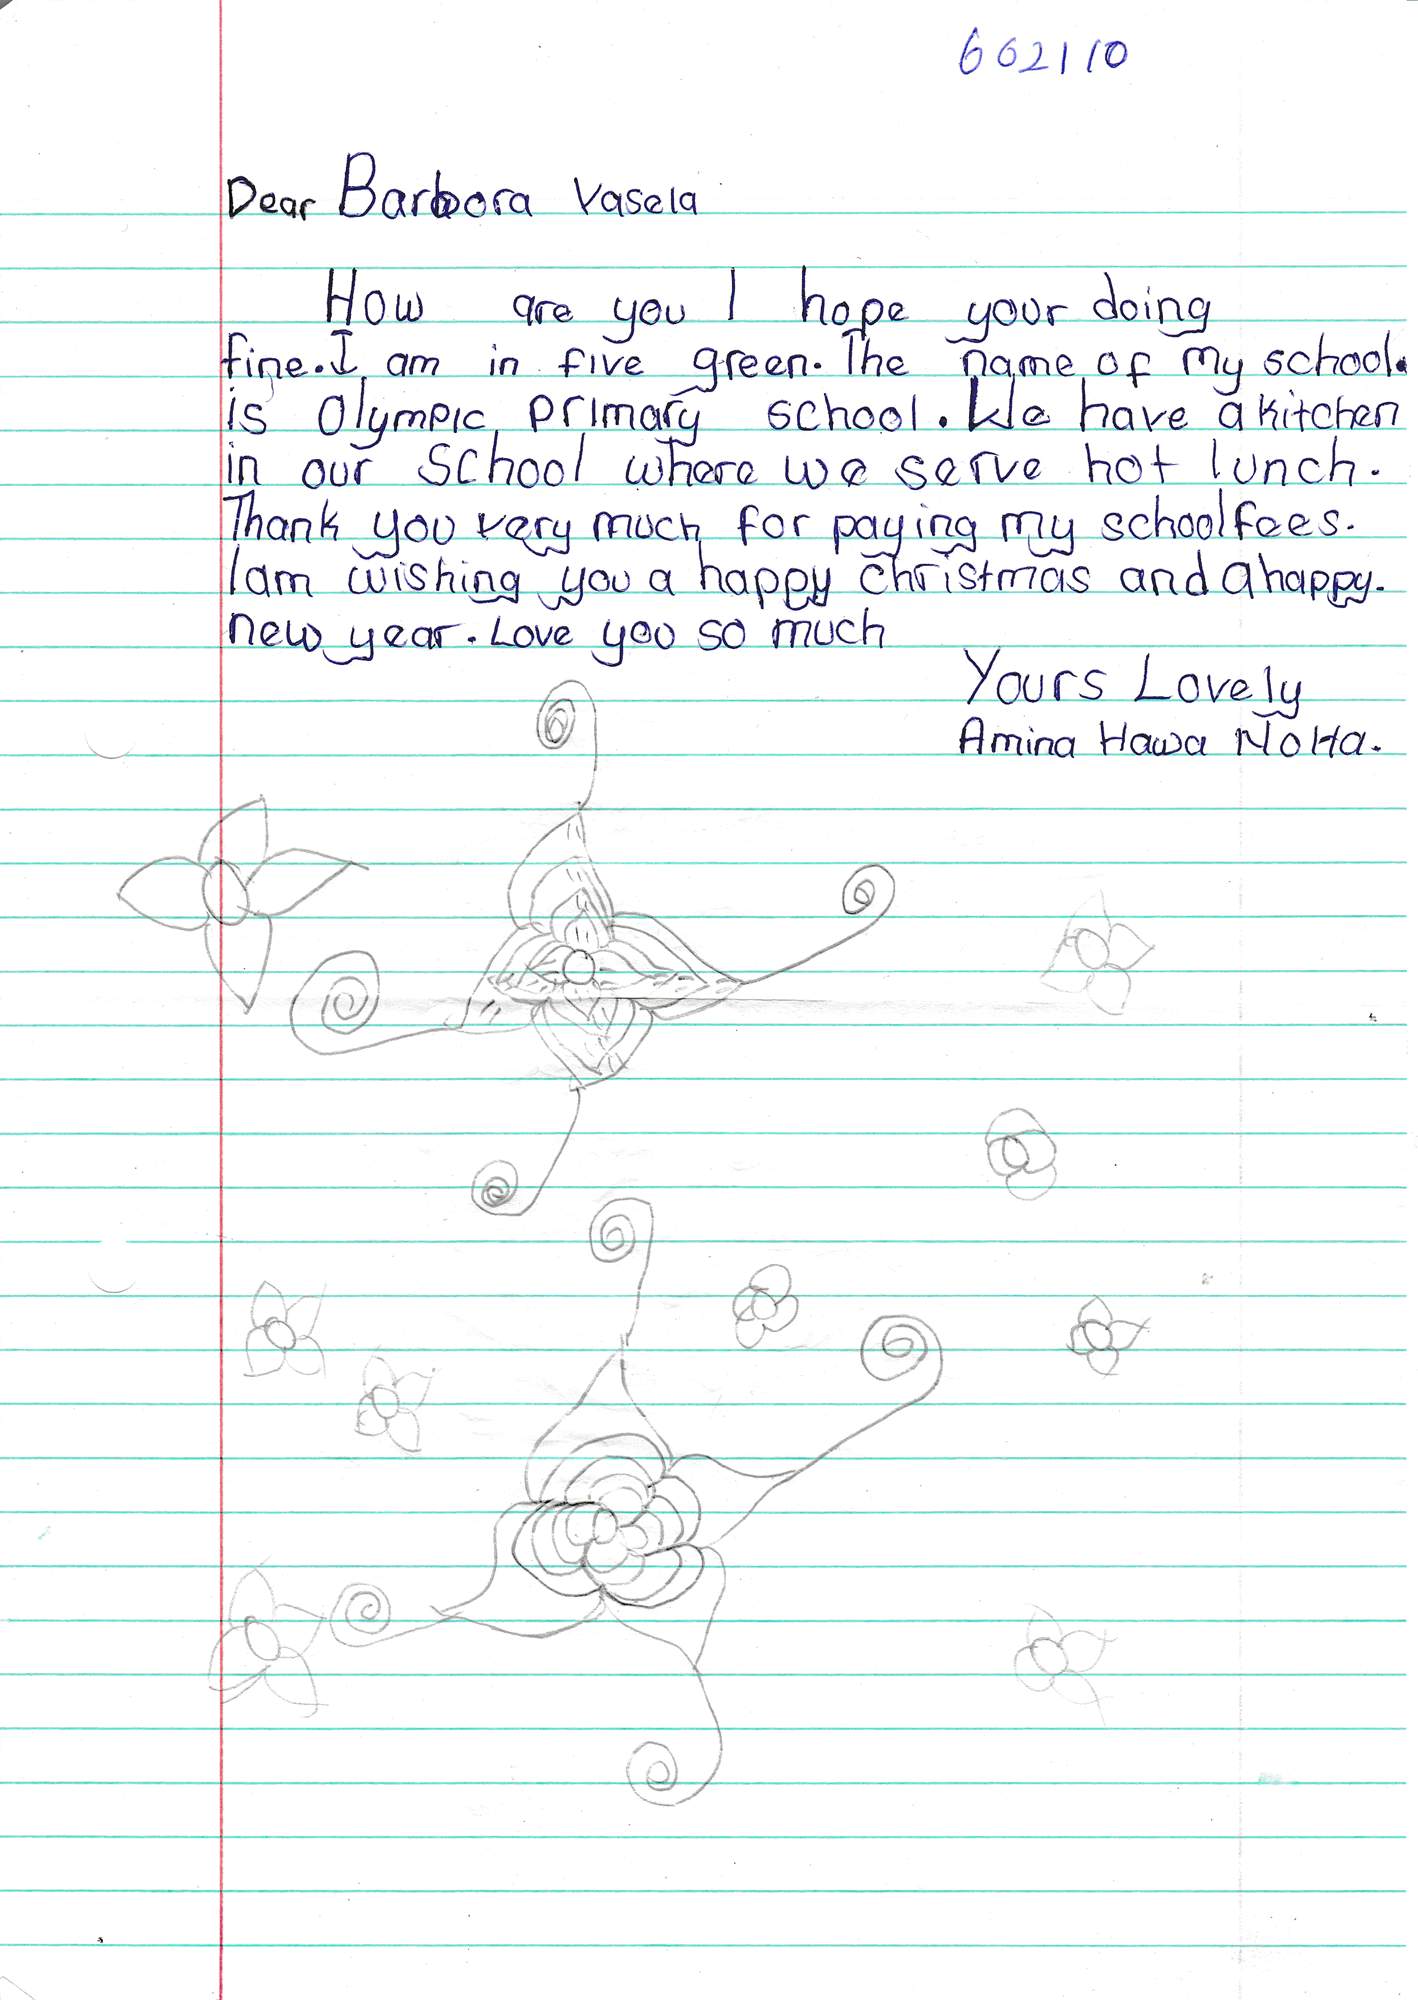 662110
Dear Barbora Vasela
How are you I hope your doing
fine. I am in five green. The name of my school.
is Olympic primary school. We have a kitchen
in our school where we serve hot lunch.
Thank you very much for paying my schoolfees.
I am wishing you a happy christmas and a happy.
new year. Love you so much
Yours Lovely
Amina Hawa Nolta.